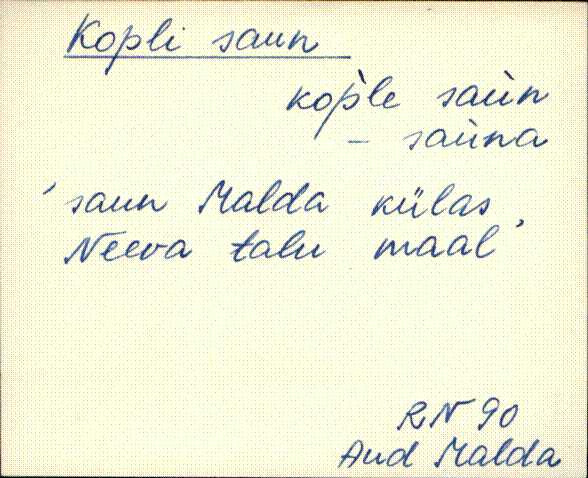 Kopli saun
kop̀le saùn
– saùna
'saun Malda külas,
Neeva talu maal'
RN 90
Aud Malda